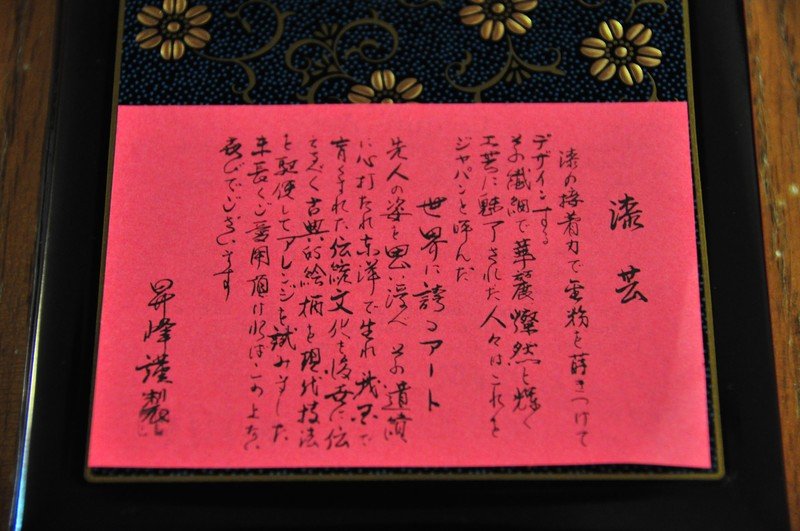 漆芸
漆の接着力で金粉を蒔きつけて
デザインする
その繊細で華麗燦然と輝く
工芸に魅了された人々はこれを
ジャパンと呼んだ
世界に誇るアート
先人の姿を思い浮べ その遺蹟
に心打たれ東洋で生れ我国で
育まれた伝統文化を後世に伝
えるべく古典的絵柄を現代技法
を駆使してアレンジを試みました
末長くご愛用頂ければこの上ない
喜びでございます
昇峰謹製